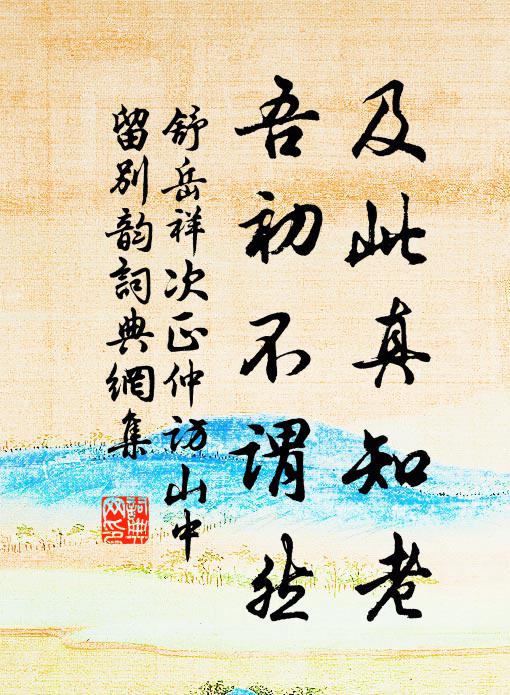 及此真知老
吾初不謂然
舒岳祥次正仲訪山中
留別韵詞典網集